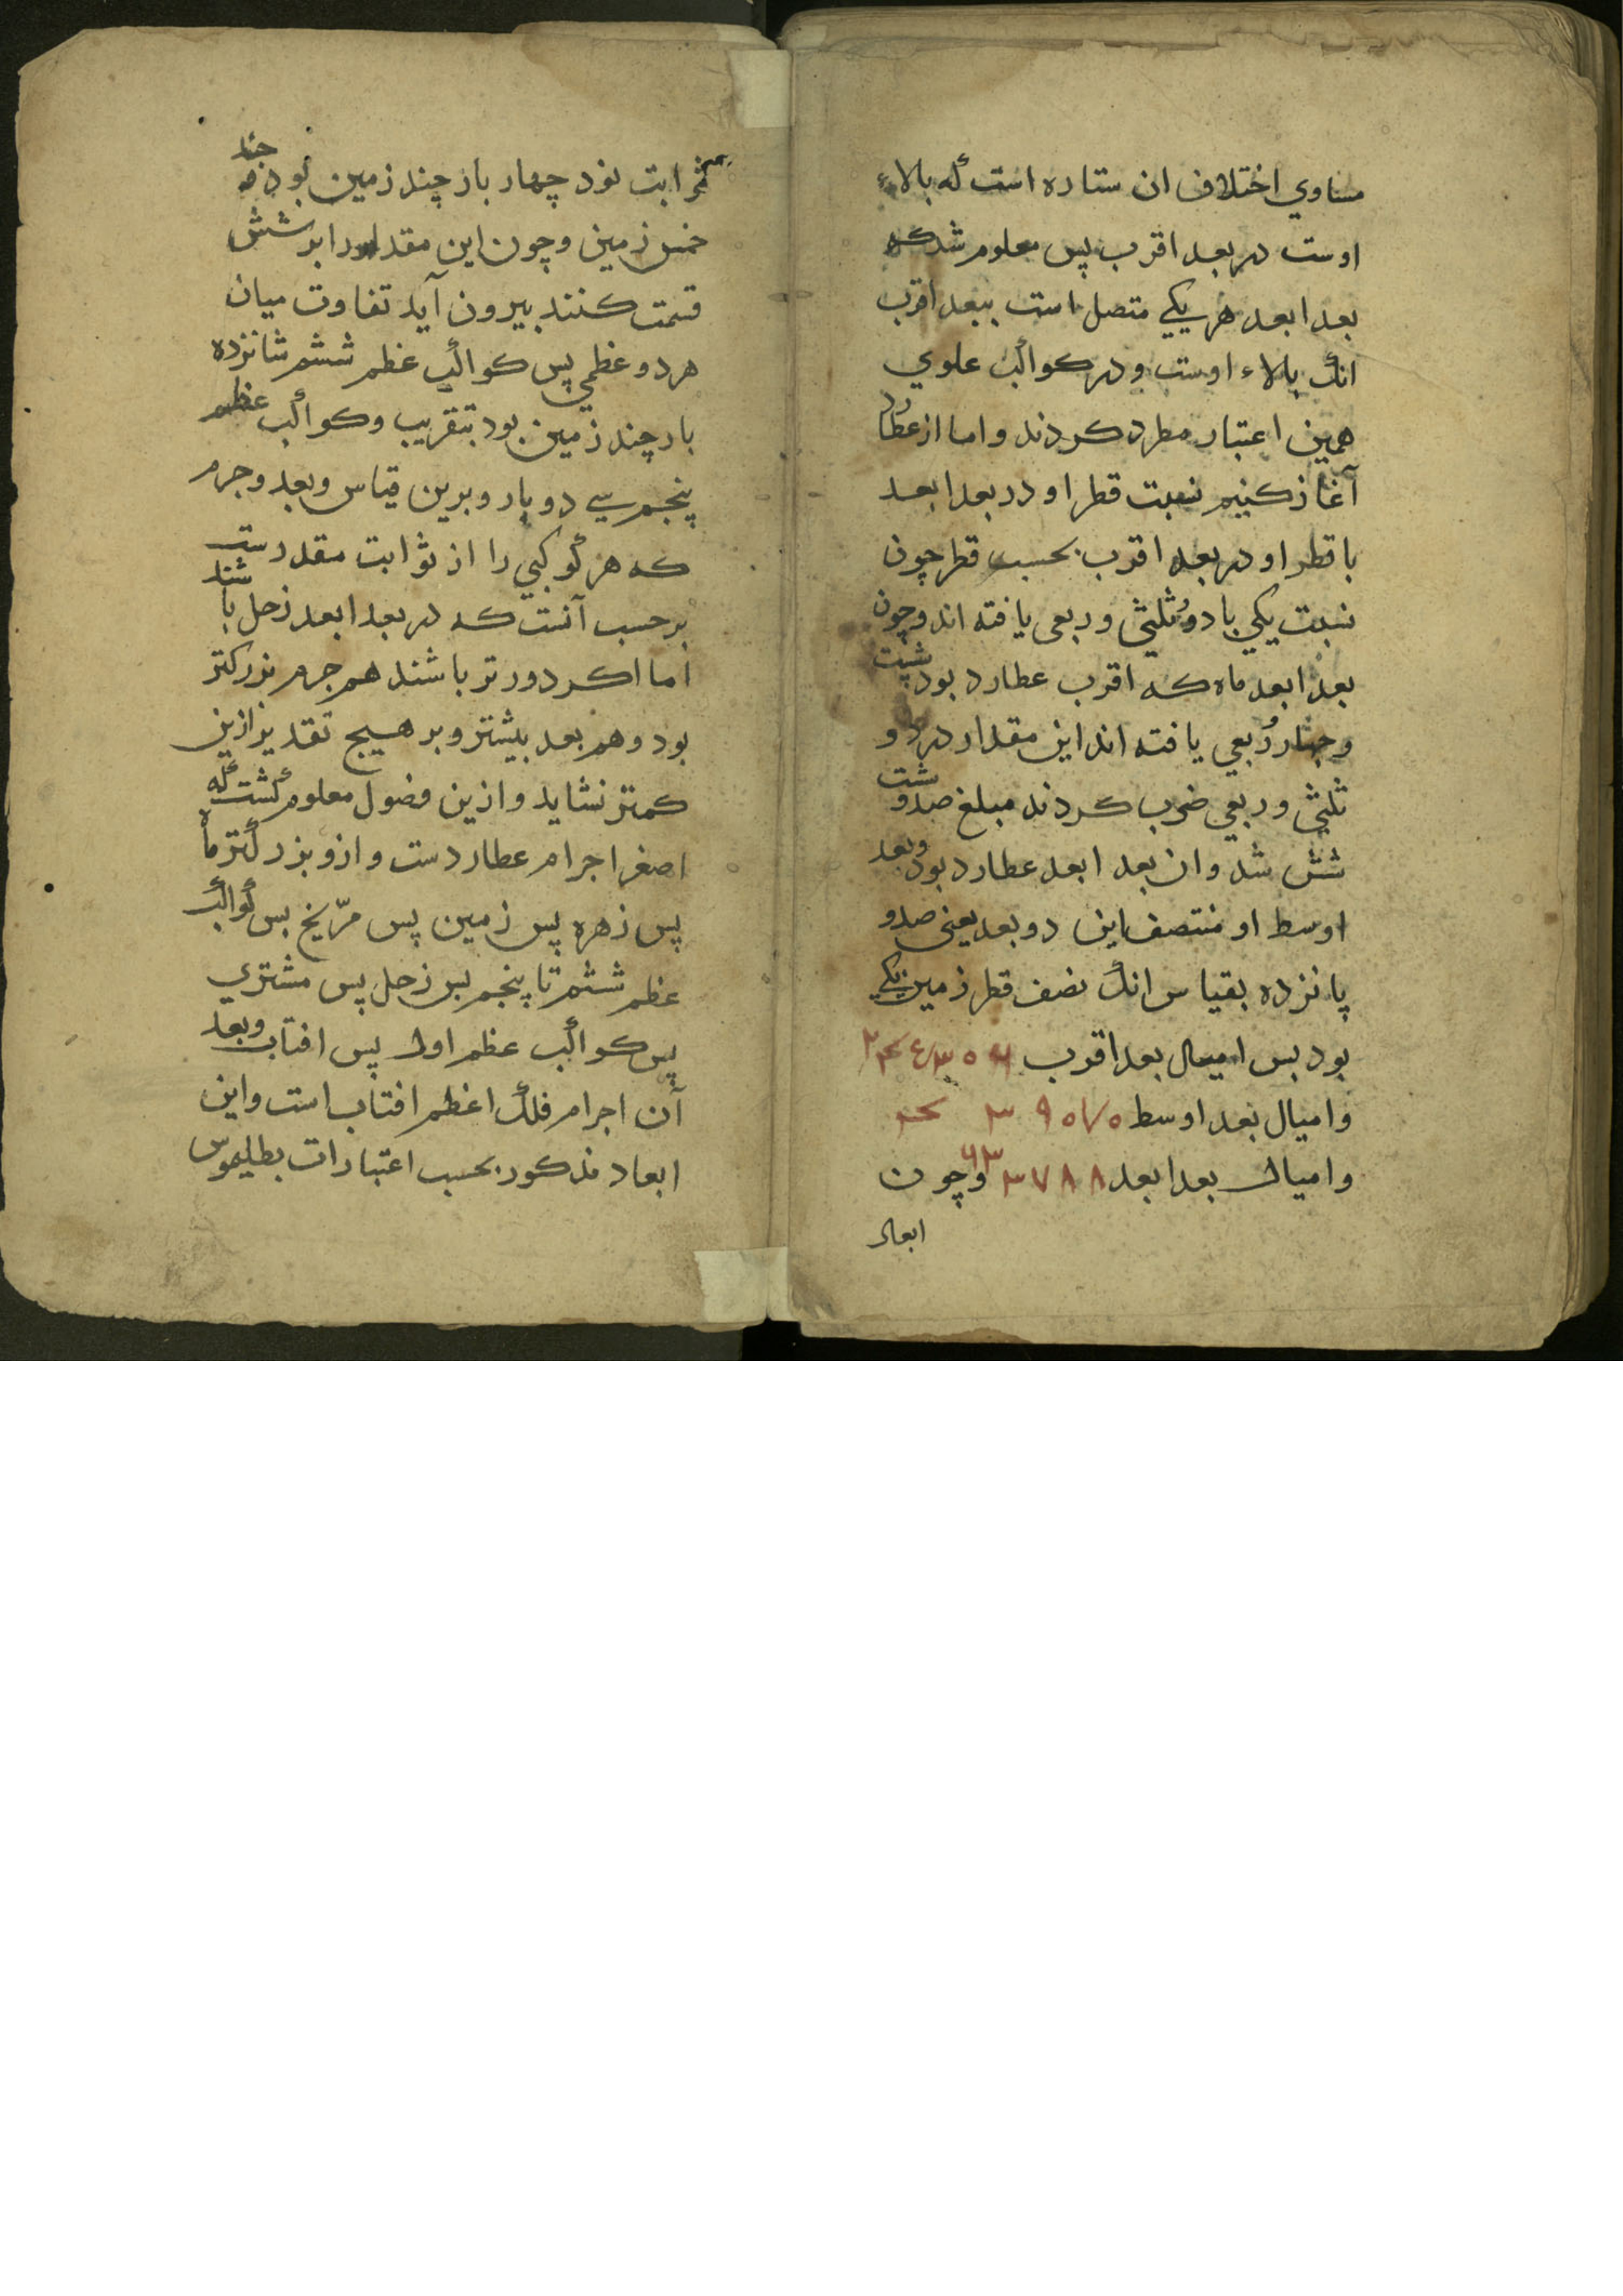 مساوي اختلاف ان ستاره است که بالاء
اوست در بعد اقرب پس معلوم شد که
بعد ابعد هر یکي متصل است ببعد اقرب
انک بالاء اوست و در کواکب علوي
همین اعتبار مطرد کردند و اما از عطارد
آغاز کنیم نسبت قطر او در بعد ابعد
با قطر او در بعد اقرب بحسب قطر چون
نسبت یکي با دو ثلثي و ربعي یافته اند و چون
بعد ابعد ماه که اقرب عطارد بود شست
و چهار ربعي یافته اند این مقدار در دو
ثلثي و ربعي ضرب کردند مبلغ صد و شست
شش شد و ان بعد ابعد عطارد بود و بعد
اوسط او منتصف این دو بعد یعني صد و
پانزده بقیاس انک نصف قطر زمین یکي
بود بس امیال بعد اقرب
وامیال بعد اوسط
وامیال بعد ابعد و چون
ابعاد
ثوابت نود چهار بار چند زمین بود و چند
خمس زمین و چون این مقدار را بر شش
قسمت کنند بیرون آید تفاوت میان
هر دو عظمي پس کواکب عظم ششم شانزده
بار چند زمین بود بتقریب و کواکب عظم
پنجم سي دو بار و برین قیاس و بعد و جرم
که هر کوکبي را از ثوابت مقدرست
بر حسب آنست که در بعد ابعد زحل باشند
اما اکر دورتر باشند هم جرم بزرکتر
بود و هم بعد بیشتر و بر هیچ تقدیر ازین
کمتر نشاید و ازین فصول معلوم کشت که
اصغر اجرام عطاردست و ازو بزرکتر ماه
پس زهره پس زمین پس مرّیخ بس کواکب
عظم ششم تا پنجم بس زحل پس مشتري
پس کواکب عظم اول پس افتاب و بعد
آن اجرام فلک اعظم افتاب است و این
ابعاد مذکور بحسب اعتبارات بطلیموس